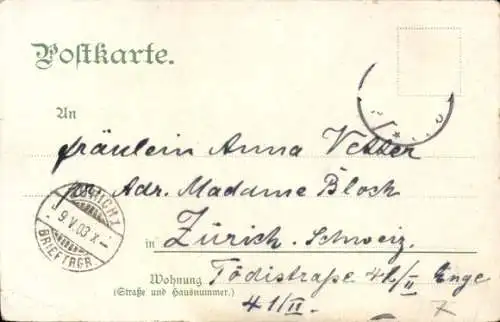 Postkarte.
An
Fräulein Anna Vetter
Adr. Madame Bloch
in Zürich. Schweiz.
Wohnung Tödistraße 41/II Enge
(Straße und Hausnummer.)
41/II.
ZÜRICH 1
9.V.03.X-
BRIEFTRGR.